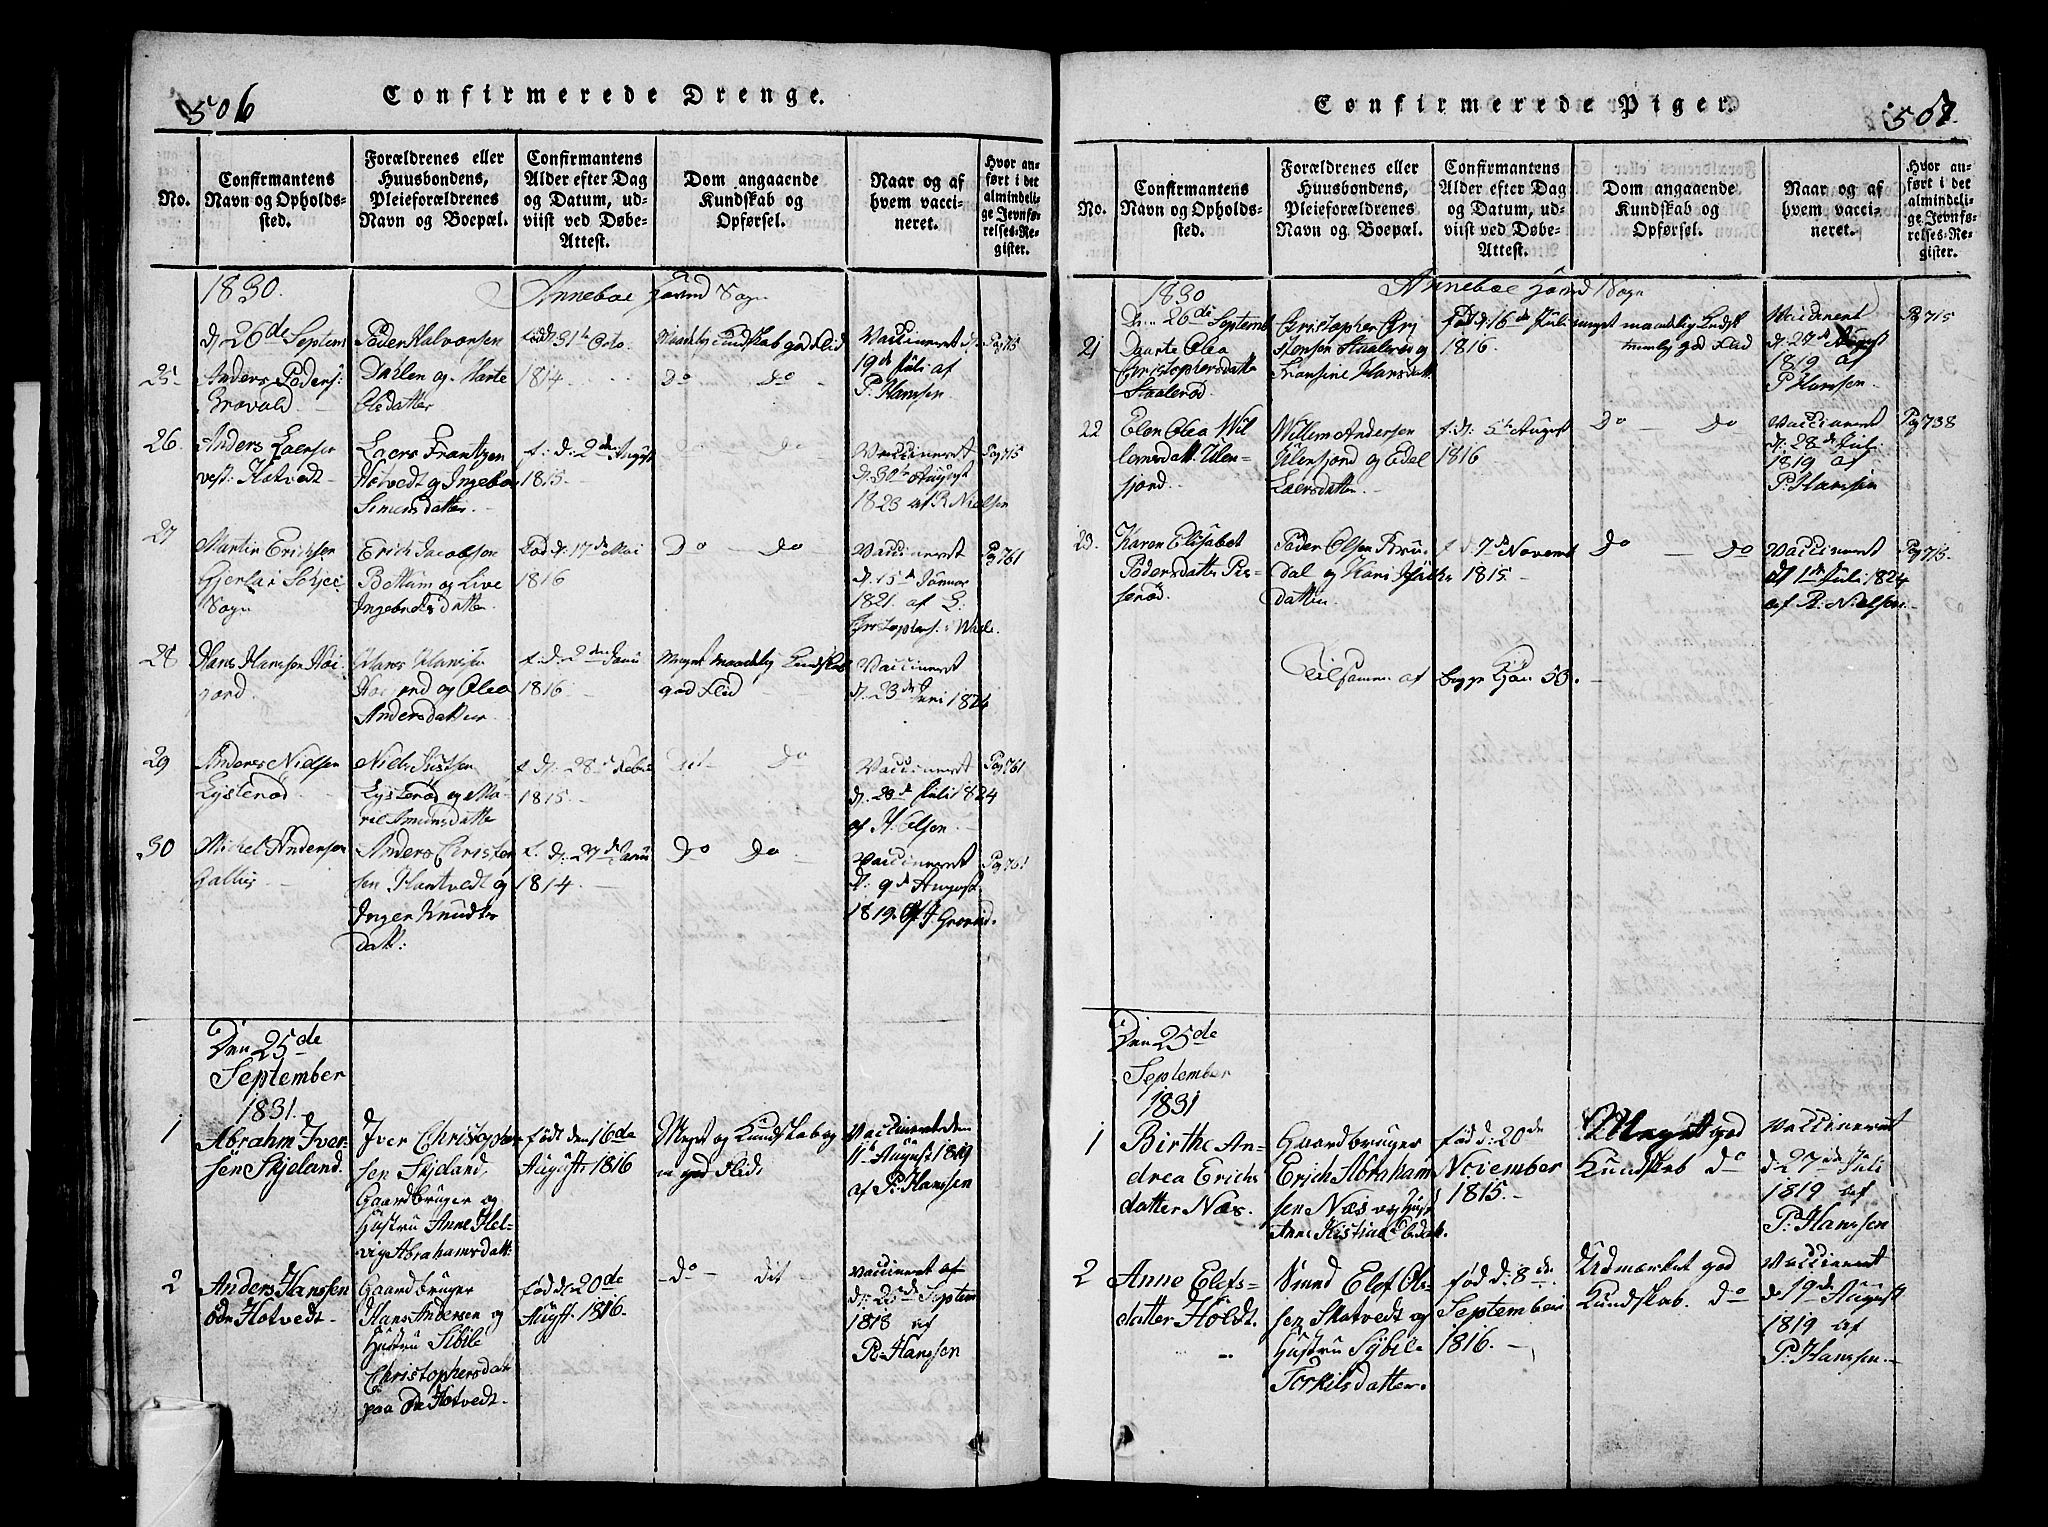 506
Confirmerede Drenge.
No.
Confirmantens
Navn og Opholds-
sted.
Forældrenes eller
Huusbondens,
Pleieforældrenes
Navn og Boepæl.
Confirmantens
Alder efter Dag
og Datum, ud-
viist ved Døbe-
Attest.
Dom angaaende
Kundskab og
Opførsel.
Naar og af
hvem vacci-
neret.
Hvor an-
ført i det
almindeli-
ge Jevnfø-
relses-Re-
gister.
1830.
Anneboe Sogn
d. 26de Septem
25
Anders Peders:
Peder Halvorsen
Dahlen og
Olsdatter
født 31te Octo
1814
Maadelig Kundskab god Flid
do do
Vaccineret d.
19de Juli af
P. Hanssen
26
Anders Laersen
vest: Hotvedt
Laers Frantzen
Hotvedt og Ingebor
Simensdatter
f. d. 2den August
1815.
do do
Vaccineret
d. 30te August
1823 af R Nielsen
Pag 715
27
Martin Erichsen
Sogn
Erich Jacobsen
Bottum og Live
Ingebretsdatter
Født d. 17de Mai
1816
do do
Vaccineret
d. 15de Januar
1821. af L.
Christophers:
Pag 761
28
Hans Hansen Høi
jord.
Hans Hansen
og Olea
Andersdatter
f. d. 2den
1816
Meget maadelig Kundskab
god Flid
Vaccineret
d. 23de Juni 1824
29
Anders Nielsen
Lysterød
Niels Justsen
Lysterød og Ma-
ri
f. d. 28de
1815.
Dit do
Vaccineret
d. 20de Juli 1824
af H. Olsen.
Pag 761
30
Michel Andersen
Anders Christen
sen Hantvedt og
Inger Knudts
datt:
f. d. 27de
1814.
do do
Vaccineret
d. 9de August
1819. af J.
Pag 761
Den 25de
September
1831.
1
Abrahm Iver-
sen Skjeland.
Iver Christopher
sen Skjeland,
Gaardbruger og
Hustru Anne Hel-
vig Abrahamsdatt:
født den 16de
August 1816
Meget god Kundskab og
god Flid
Vaccineret den
11te August 1819
af P. Hanssen
2
Anders Hanssen
Hotvedt
Gaardbruger
Hans Andersen og
Hustru Sibile
Christophersdatt
paa Hotvedt.
født d. 20de
August 1816.
do dit
vaccineret af
d. 25de Septem
1818 af
P. Hanssen
507.
Confirmerede Piger.
No.
Confirmantens
Navn og Opholds-
sted.
Forældrenes eller
Huusbondens,
Pleieforældrenes
Navn og Boepæl.
Confirmantens
Alder efter Dag
og Datum, ud-
viist ved Døbe-
Attest.
Dom angaaende
Kundskab og
Opførsel.
Naar og af
hvem vacci-
neret.
Hvor an-
ført i det
almindeli-
ge Jevnfø-
relses-Re-
gister.
1830
Anneboe Sogn
26de Septemb
21
Olea
Christophersdatte
Staalerød
Christopher Chri
stensen Staalerød og
Fransine Hansdatt
Født d. 16de Juli
1816.
meget maadelig Kundsk
temelig god Flid
Vaccineret
d. 27de August
1819 af
P Hanssen.
Pag 715
22
Elen Olea Wil
lomsdatt. Ulen-
fjord.
Willem Andersen
Ulenfjord og Edel
Laersdatter.
f. d. 5te August
1816
do do
Vaccineret
d. 28de Juli
1819 af
P. Hanssen
Pag 738
23.
Karen Elisabet
Pedersdatter
Peder Olsen
dal og Kari
datter
f. d. 7de Novemb
1815.
do do
Vaccineret
d. 1de Juli 1824
af R. Nielsen
Pag 715
Tilsammen af begge Kjøn 53.
Den 25de
September
1831
1
Birthe An-
drea Erichs
datter Næs.
Gaardbruger
Erich Abraham
sen Næs og Hust
Anne Kistine
fød d: 20de
November
1815.
Meget god
Kundskab do
vaccineret
d. 27de Juli
1819 af
P. Hanssen
2
Anne Elefs-
datter Holdt.
Smed Elef Ols-
sen Skotvedt og
Hustru Sybile
Torkilsdatter.
født d: 8de
September
1816.
Udmærket god
Kundskab. do
Vaccineret
d. 19de August
1819 af
P. Hanssen.